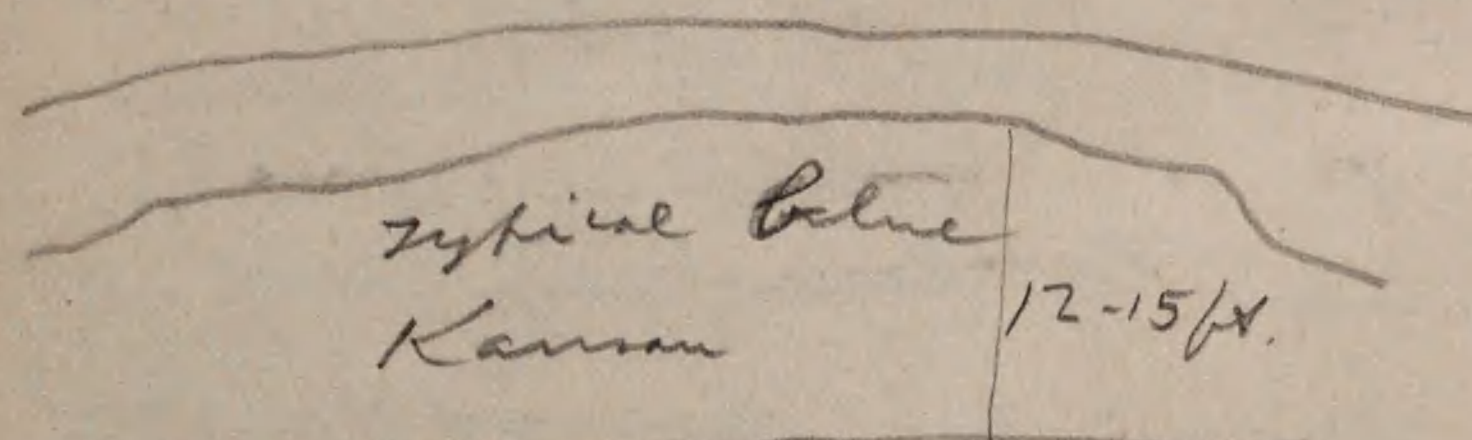 Typical blue
Kansan
12-15 ft.